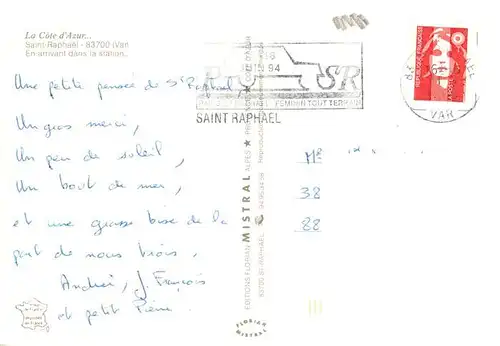 La Côte d'Azur...
Saint-Raphaël - 83700 (Var)
En arrivant dans la station...
Une petite pensée de St Raphael,
Un gros merci,
Un peu de soleil,
Un bout de mer,
et une grosse bise de la
part de nous trois,
Andréi, J. François
et petit Pierre.
SAINT RAPHAEL
FEMININ TOUT TERRAIN
SR
94
EDITIONS FLORIAN MISTRAL
83700 ST-RAPHAEL
ALPES
COTE D'AZUR
REPUBLIQUE FRANÇAISE
VAR
Mr
38
88
FLORIAN
MISTRAL